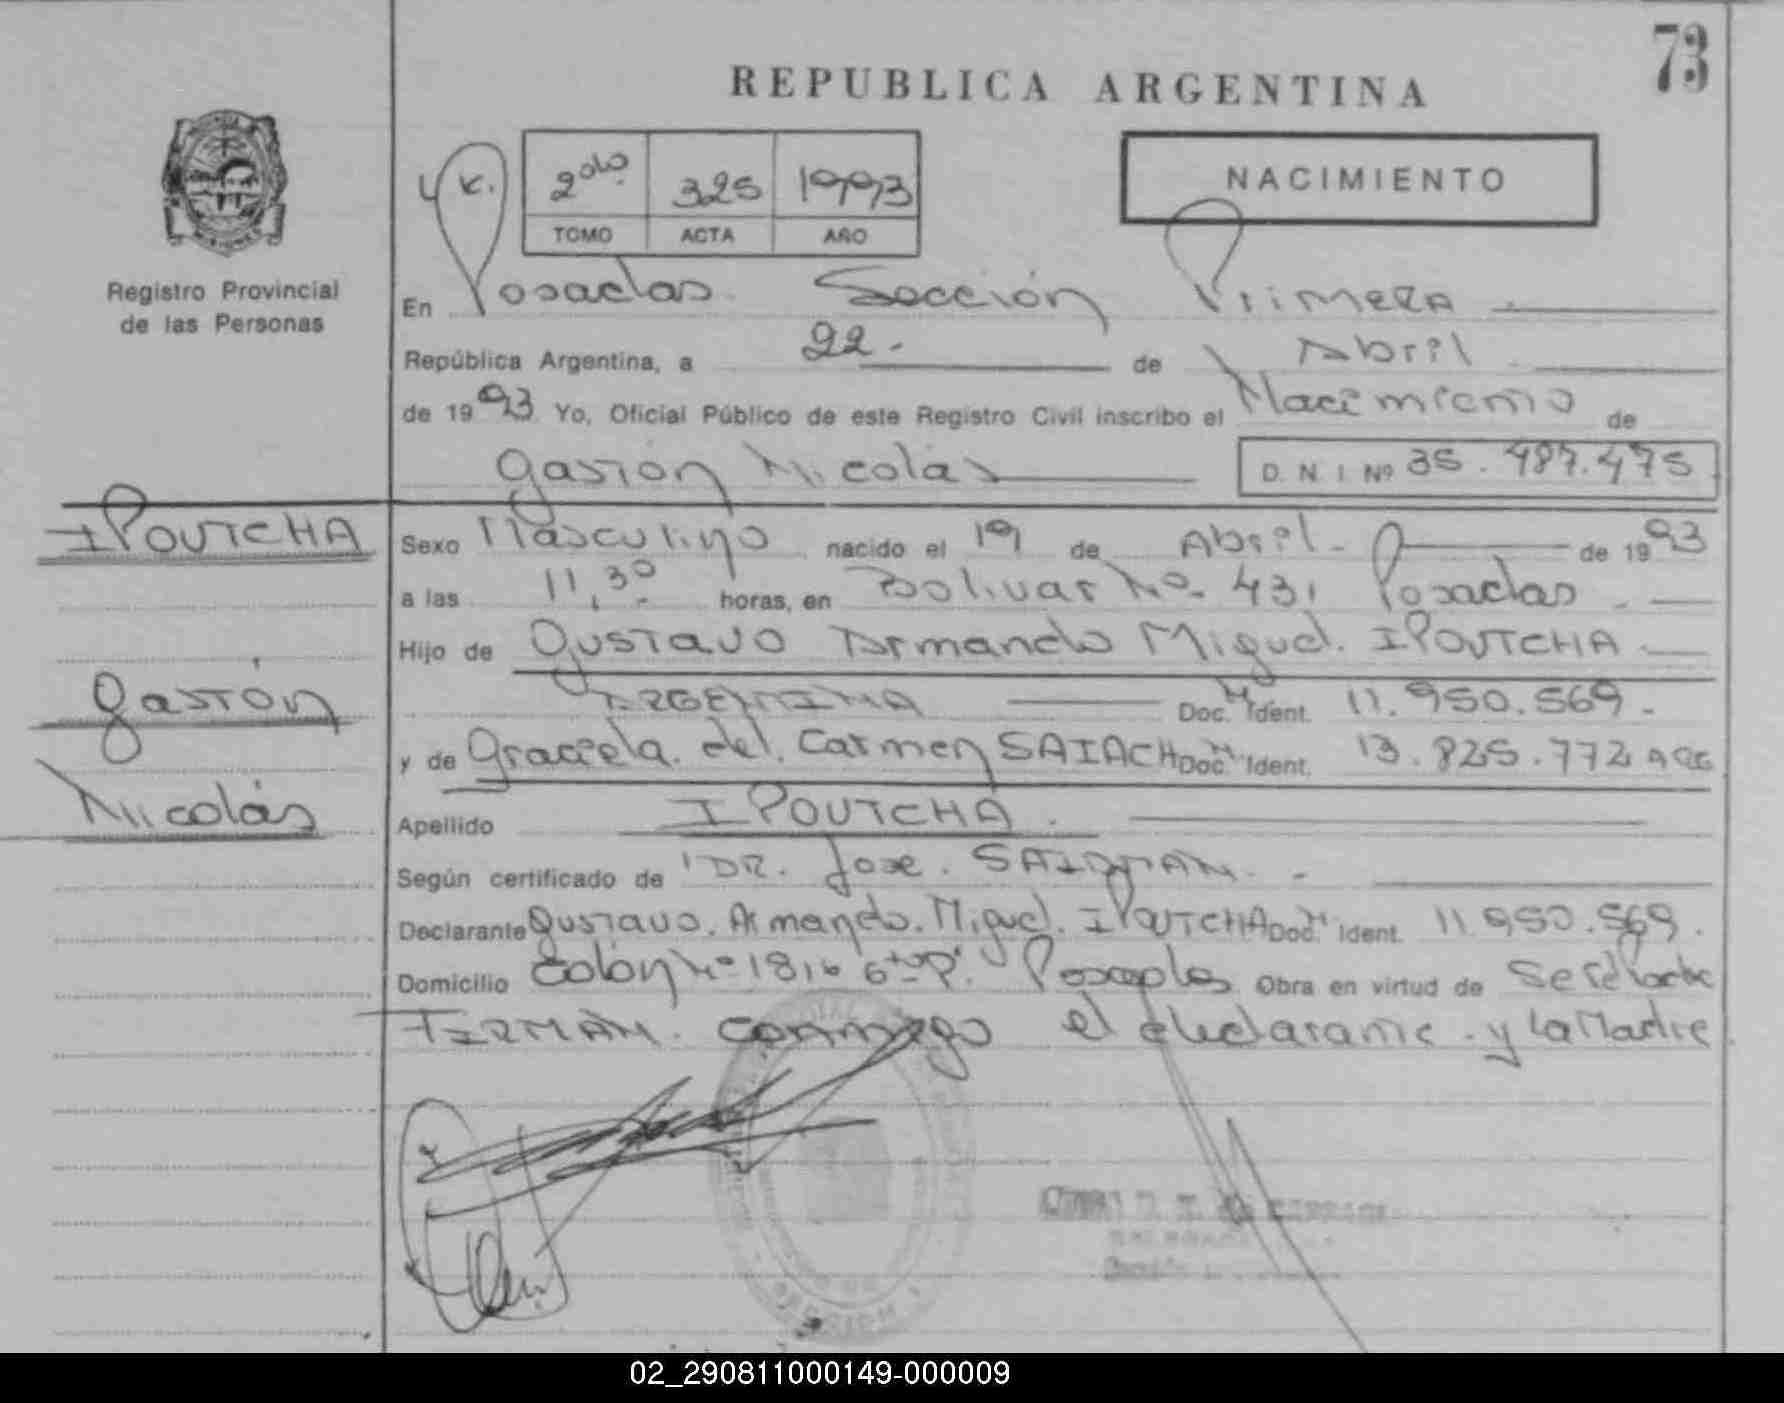 73
REPUBLICA ARGENTINA
NACIMIENTO
2do 325 1993
TOMO ACTA AÑO
Registro Provincial
de las Personas
En Posadas Sección Primera
República Argentina, a 22.- de Abril
de 1993 Yo, Oficial Público de este Registro Civil inscribo el Nacimiento de
Gastón Nicolás D. N. I. Nº 35.487.475
IPOUTCHA
Sexo Masculino nacido el 19 de Abril - de 1993
a las 11,30 horas, en Bolivar No. 431 Posadas
Hijo de Gustavo Armando Miguel IPOUTCHA
Gastón
ARGENTINA Doc. Ident. 11.950.569.-
y de Graciela del Carmen SAIACH Doc. Ident. 13.825.772 ARG
Nicolás
Apellido IPOUTCHA.
Según certificado de DR. Jose
Declarante Gustavo Armando Miguel IPOUTCHA Doc. Ident. 11.950.569.
Domicilio Colón Nº 1816 6to P. Posadas Obra en virtud de
el declarante y la Madre
02_290811000149-000009